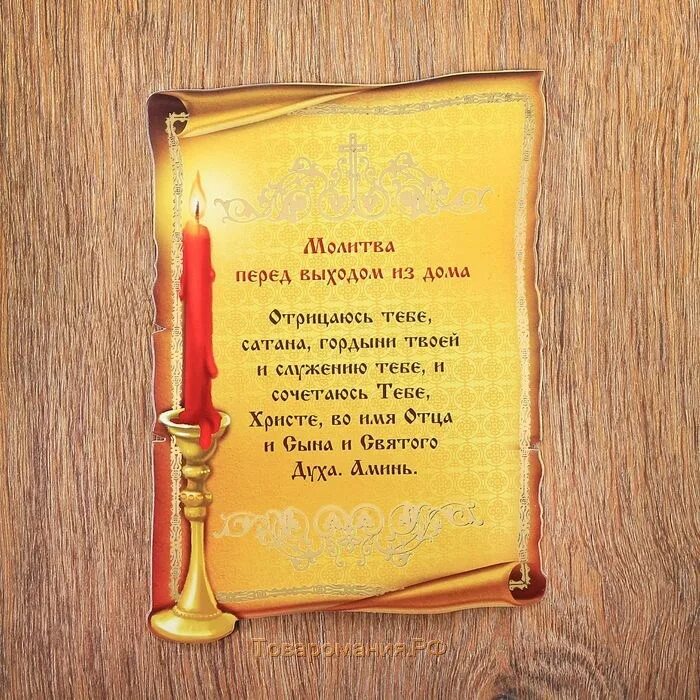 Молитва
перед выходом из дома
Отрицаюсь тебе,
сатана, гордыни твоей
и служению тебе, и
сочетаюсь Тебе,
Христе, во имя Отца
и Сына и Святого
Духа. Аминь.
Товаромания.РФ